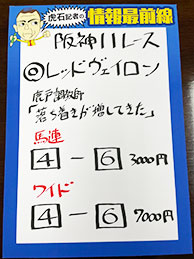 虎石記者の情報最前線
阪神11レース
◎レッドヴェイロン
鹿戸調教師
「落ち着きが増してきた」
馬連
4－6 3000円
ワイド
4－6 7000円